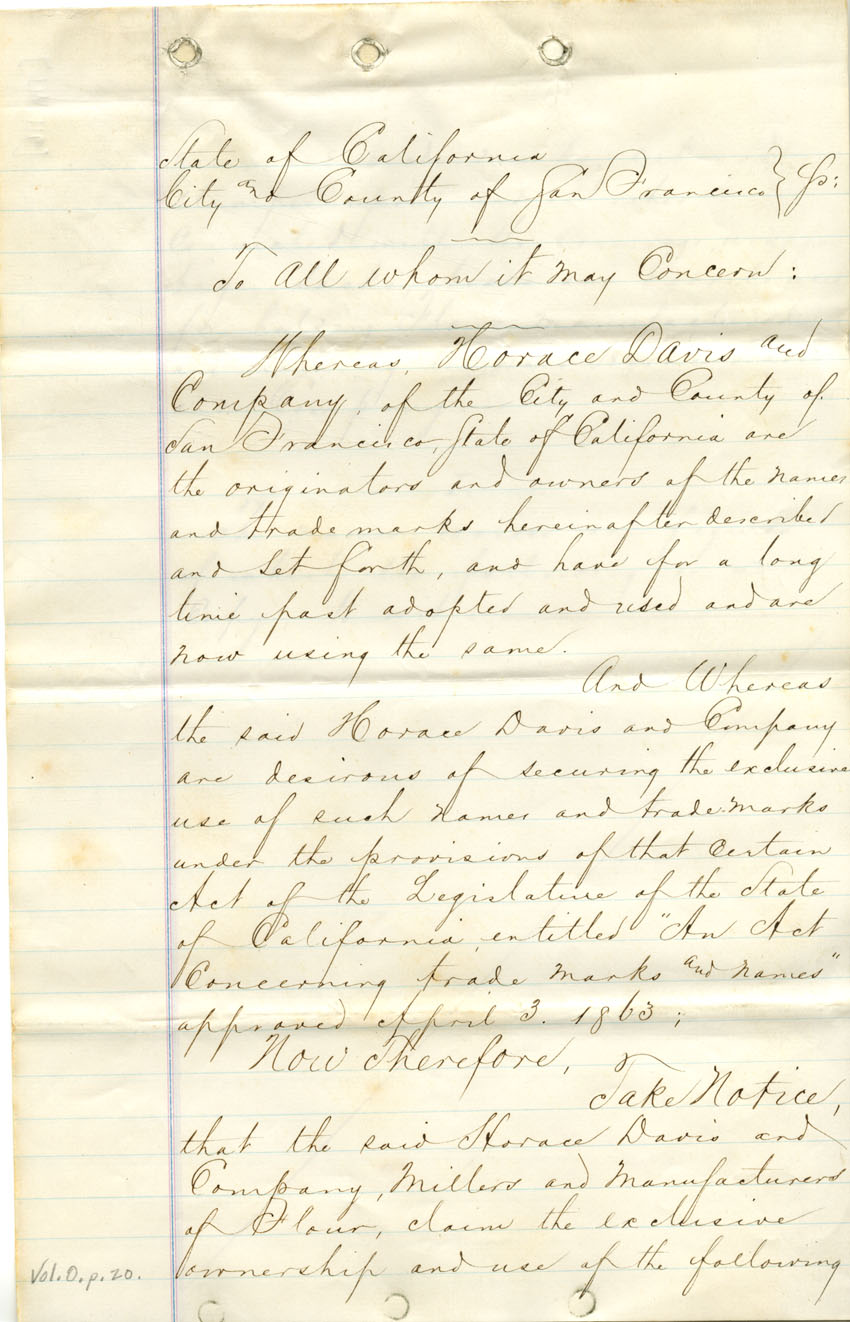 State of California
City and County of San Francisco } Ss:
To All whom it may Concern:
Whereas, Horace Davis and
Company, of the City and County of
San Francisco, State of California are
the originators and owners of the names
and trade marks hereinafter described
and set forth, and have for a long
time past adopted and used and are
now using the same.
And Whereas
the said Horace Davis and Company
are desirous of securing the exclusive
use of such names and trade-marks
under the provisions of that Certain
Act of the Legislature of the State
of California, entitled "An Act
Concerning trade marks and names"
approved April 3. 1863;
Now Therefore,
Take Notice,
that the said Horace Davis and
Company, Millers and Manufacturers
of Flour, claim the exclusive
ownership and use of the following
Vol. O. p. 20.